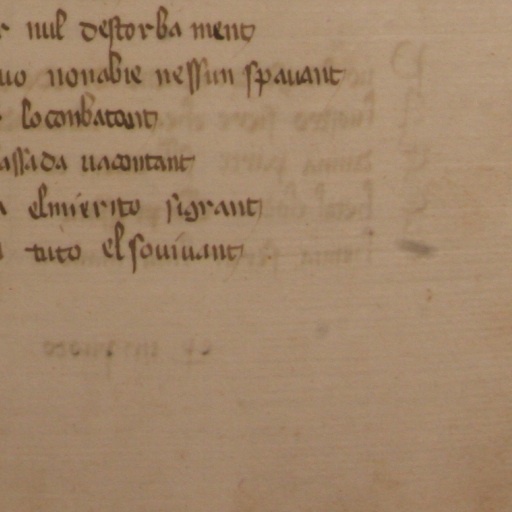 r nul destorba ment
uo nonabie nessun spauant
loconbatant
assada uacontant
a elmierito sigrant
tuto el souiuant